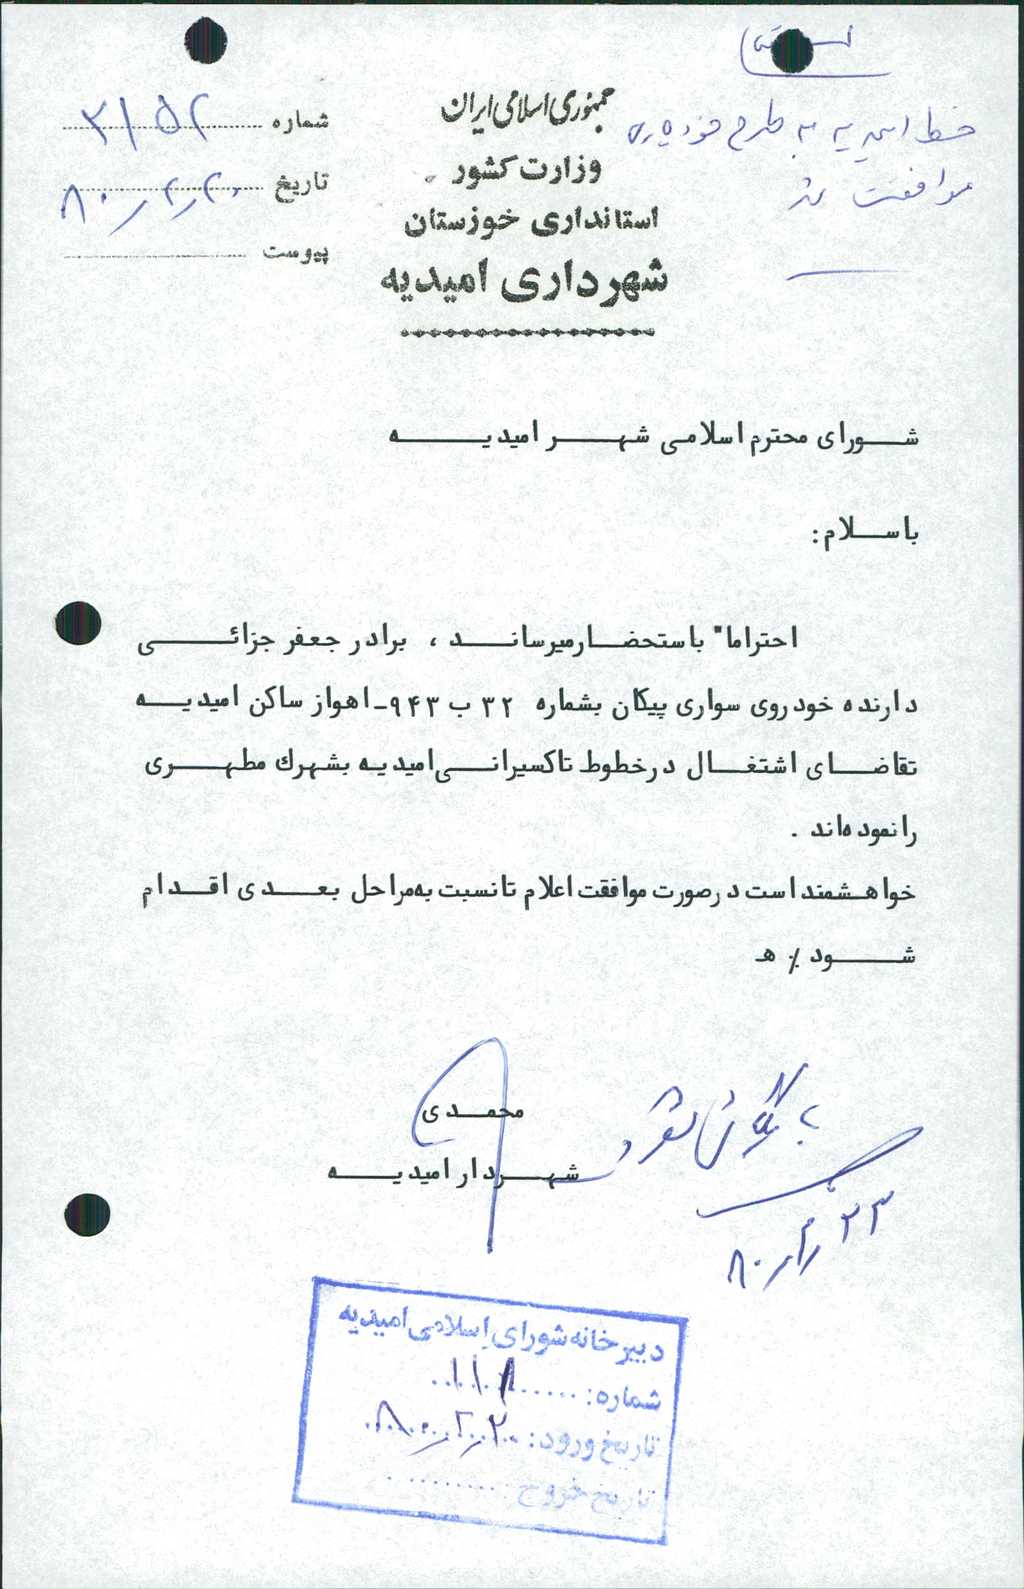 جمهوری اسلامی ایران
وزارت کشور
استانداری خوزستان
شهرداری امیدیه
شماره ۳/۵۲
تاریخ ۸۰/۲/۲۰
پیوست
به طرح
موافقت شد
شورای محترم اسلامی شهر امیدیه
باسلام:
احتراما" باستحضار میرساند ، برادر جعفر جزائی
دارنده خودروی سواری پیکان بشماره ۳۲ ب ۹۴۳-اهواز ساکن امیدیه
تقاضای اشتغال درخطوط تاکسیرانی امیدیه بشهرك مطهری
را نموده‌اند .
خواهشمند است درصورت موافقت اعلام تا نسبت به‌مراحل بعدی اقدام
شود ٪ هـ
محمدی
شهردار امیدیه
۸۰/۲/۲۳
دبیرخانه شورای اسلامی امیدیه
شماره: ۱۱۸
تاریخ ورود: ۸۰/۲/۲۰
تاریخ خروج